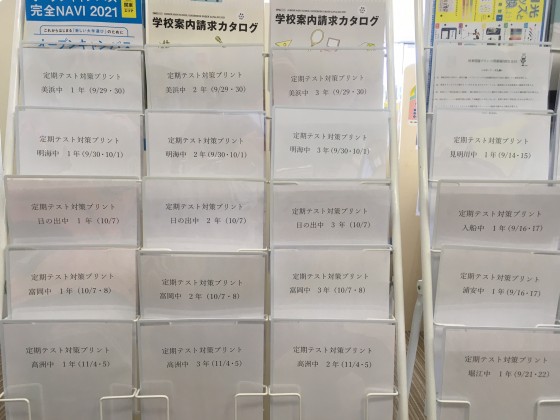 完全NAVI 2021
学校案内請求カタログ
学校案内請求カタログ
定期テスト対策プリント
美浜中 1 年 (9/29・30)
定期テスト対策プリント
美浜中 2 年 (9/29・30)
定期テスト対策プリント
美浜中 3 年 (9/29・30)
定期テスト対策プリント
明海中 1 年 (9/30・10/1)
定期テスト対策プリント
明海中 2 年 (9/30・10/1)
定期テスト対策プリント
明海中 3 年 (9/30・10/1)
定期テスト対策プリント
見明川中 1 年 (9/14・15)
定期テスト対策プリント
日の出中 1 年 (10/7)
定期テスト対策プリント
日の出中 2 年 (10/7)
定期テスト対策プリント
日の出中 3 年 (10/7)
定期テスト対策プリント
入船中 1 年 (9/16・17)
定期テスト対策プリント
富岡中 1 年 (10/7・8)
定期テスト対策プリント
富岡中 2 年 (10/7・8)
定期テスト対策プリント
富岡中 3 年 (10/7・8)
定期テスト対策プリント
浦安中 1 年 (9/16・17)
定期テスト対策プリント
高洲中 1 年 (11/4・5)
定期テスト対策プリント
高洲中 3 年 (11/4・5)
定期テスト対策プリント
高洲中 2 年 (11/4・5)
定期テスト対策プリント
堀江中 1 年 (9/21・22)